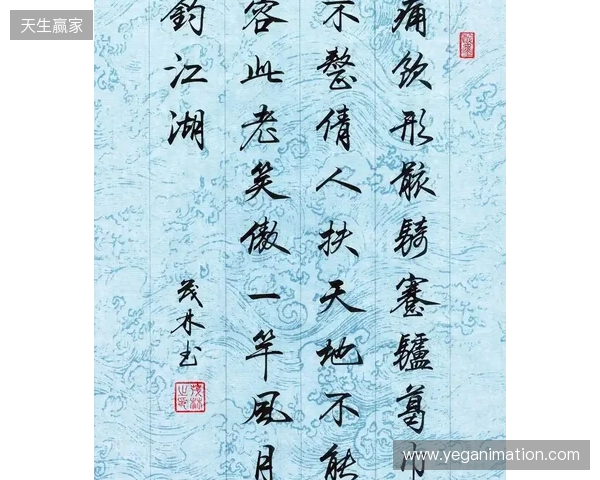 天生赢家
痛飲形骸騎蹇驢葛巾
不整倩人扶天地不能
容此老笑傲一竿風月
釣江湖
茂林书
www.yeganimation.com